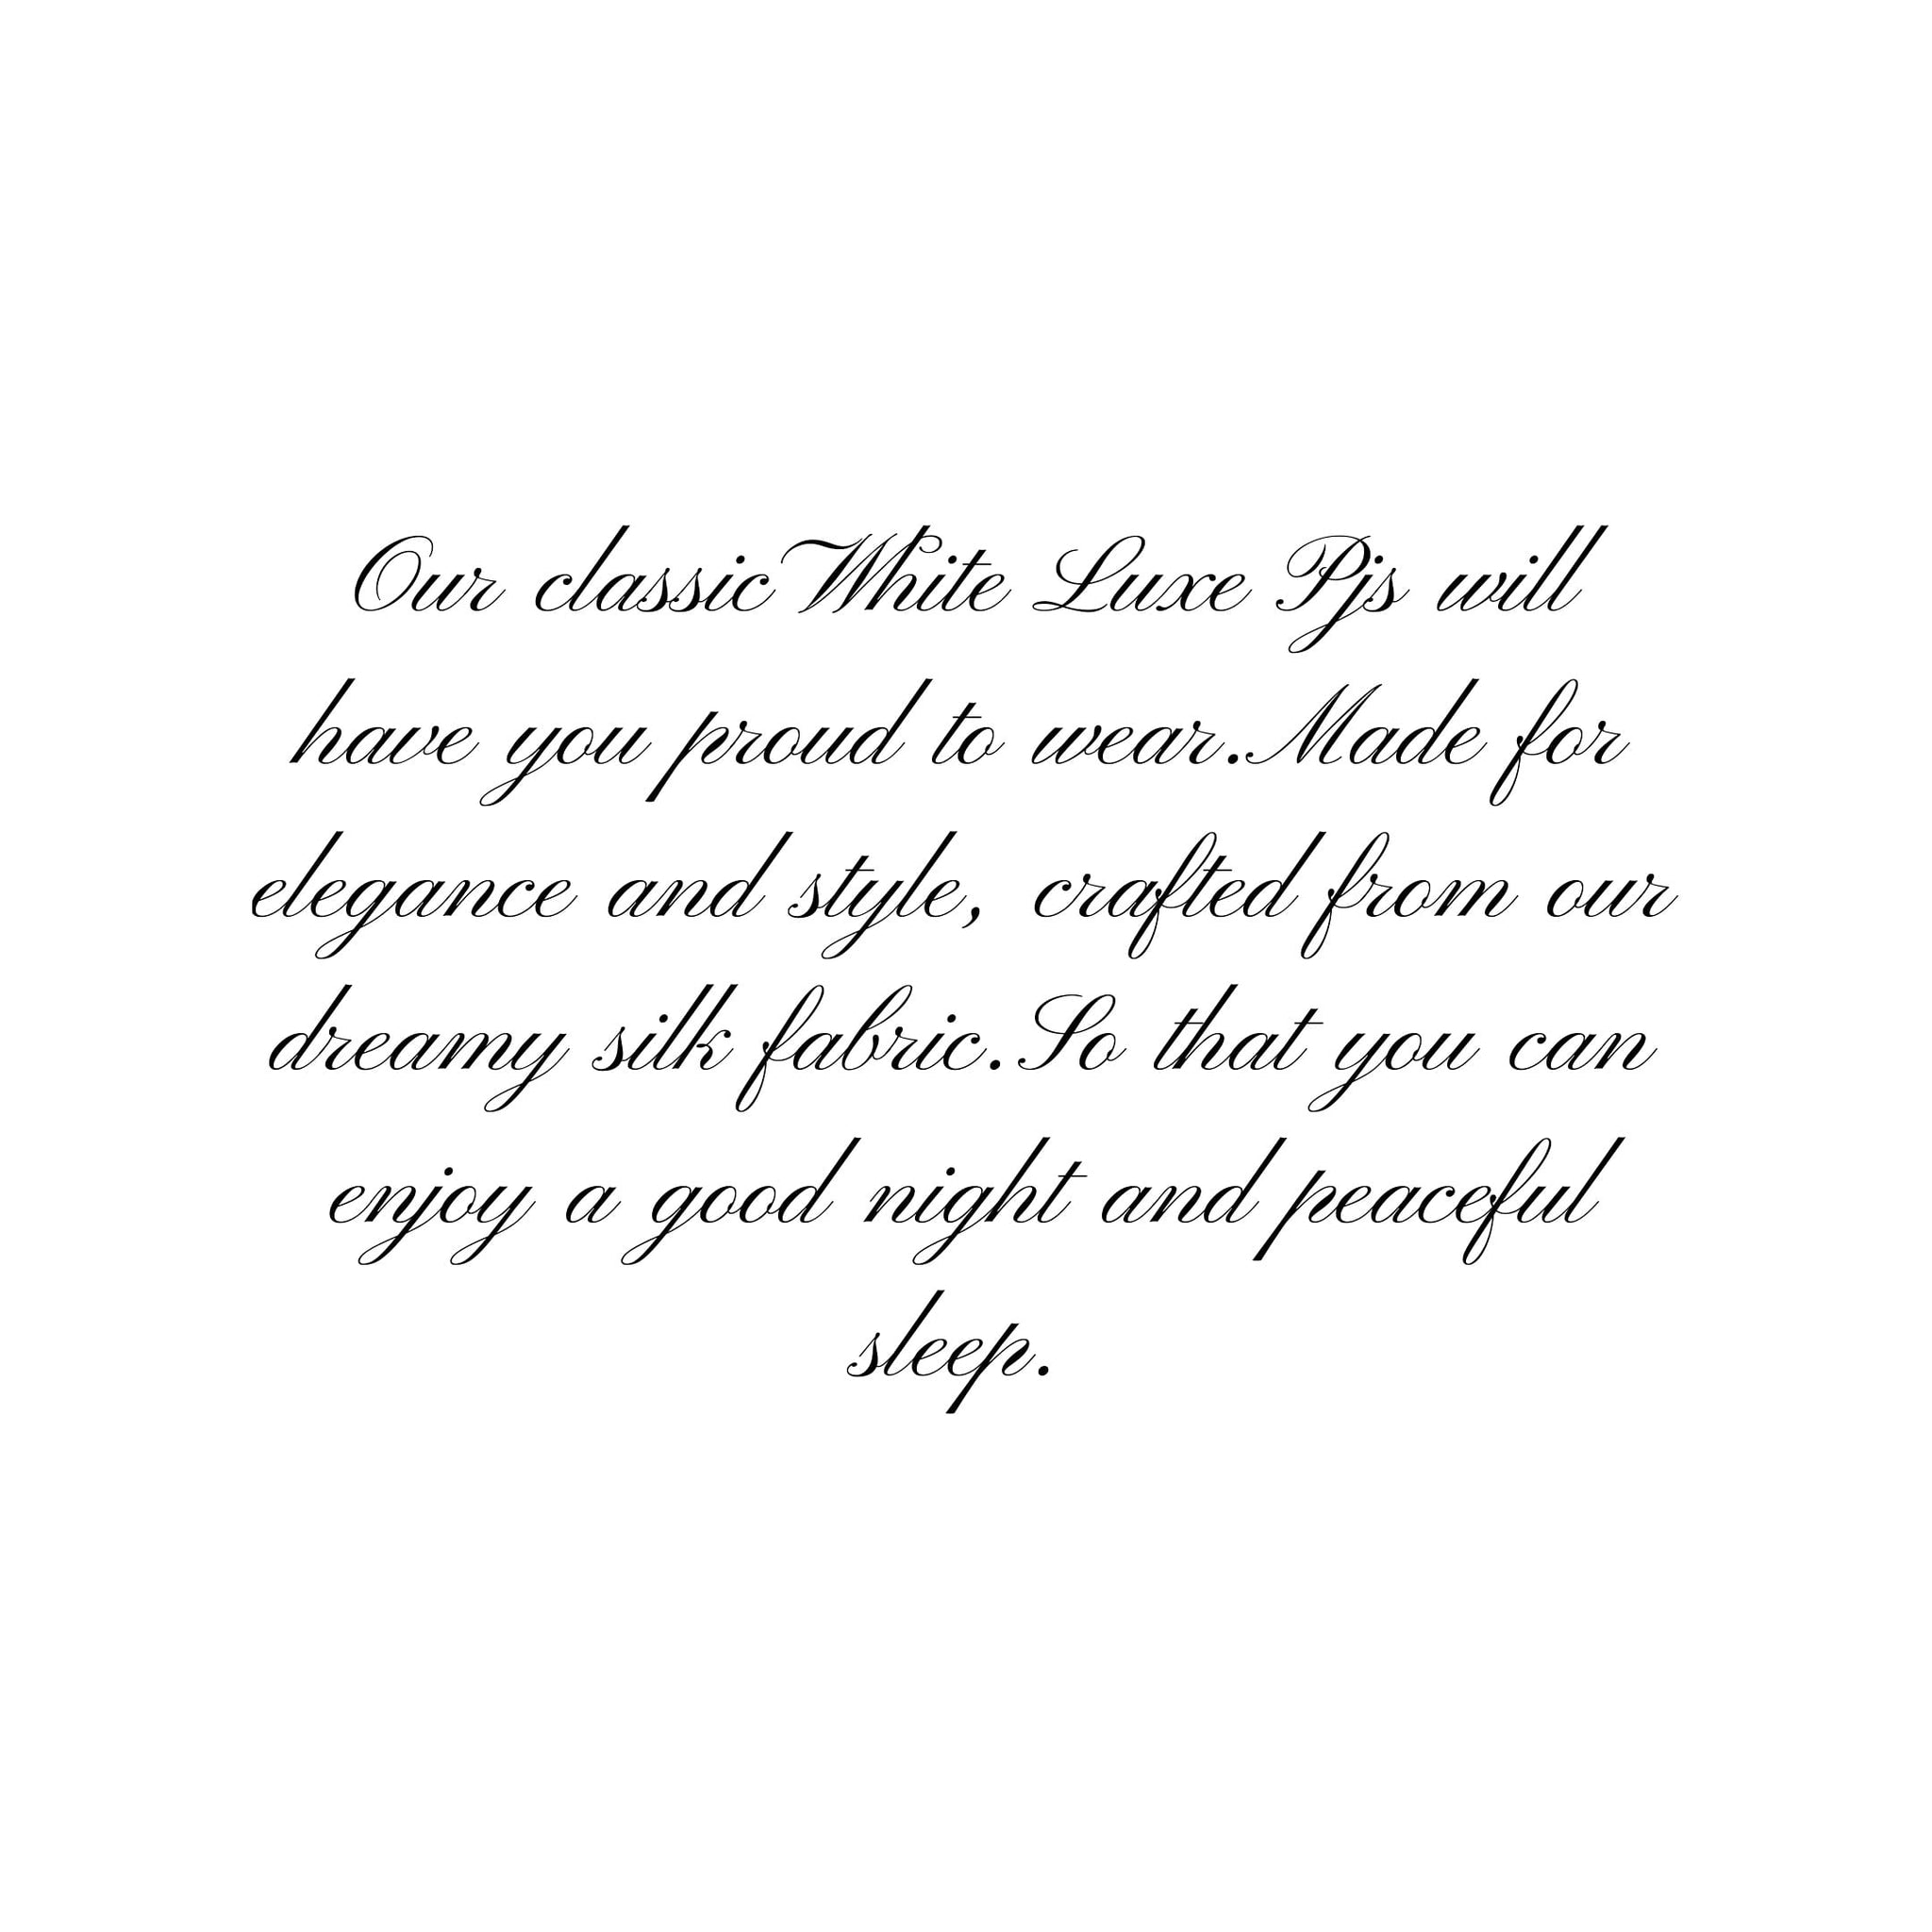 Our classic White Luxe Pjs will
have you proud to wear. Made for
elegance and style, crafted from our
dreamy silk fabric. So that you can
enjoy a good night and peaceful
sleep.